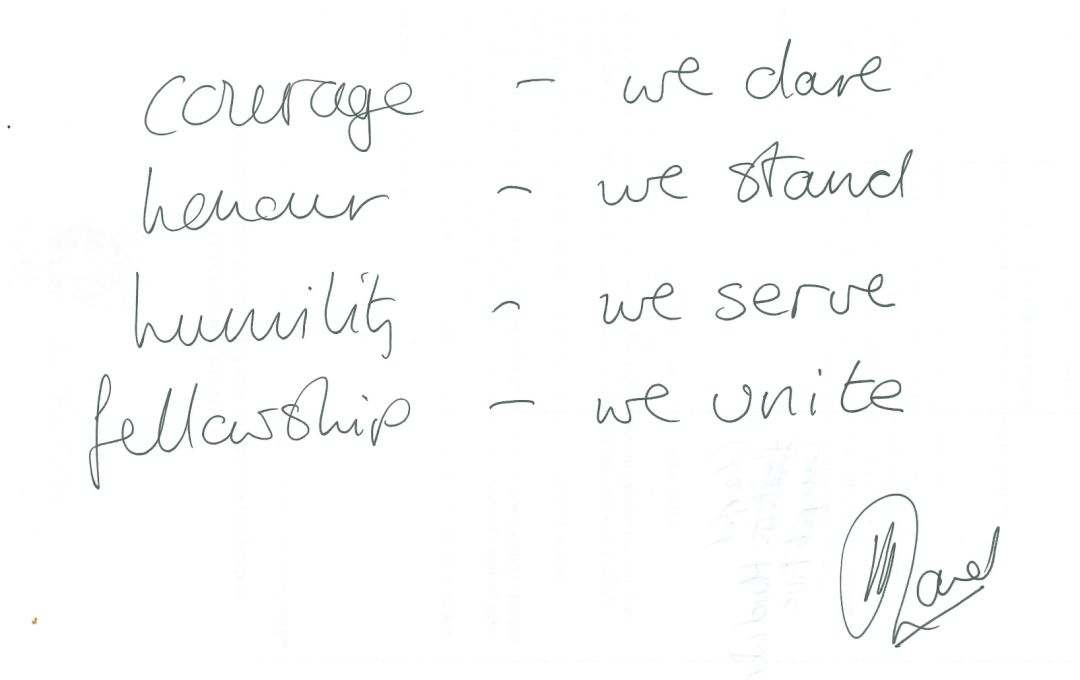 courage – we dare
honour – we stand
humility – we serve
fellowship – we unite